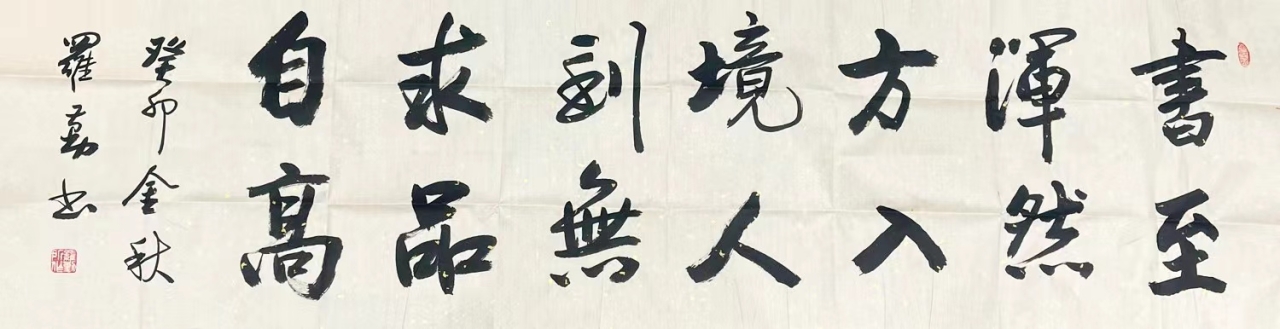 書至
渾然
方入
境人
到無
求品
自高
癸卯金秋
羅勤书